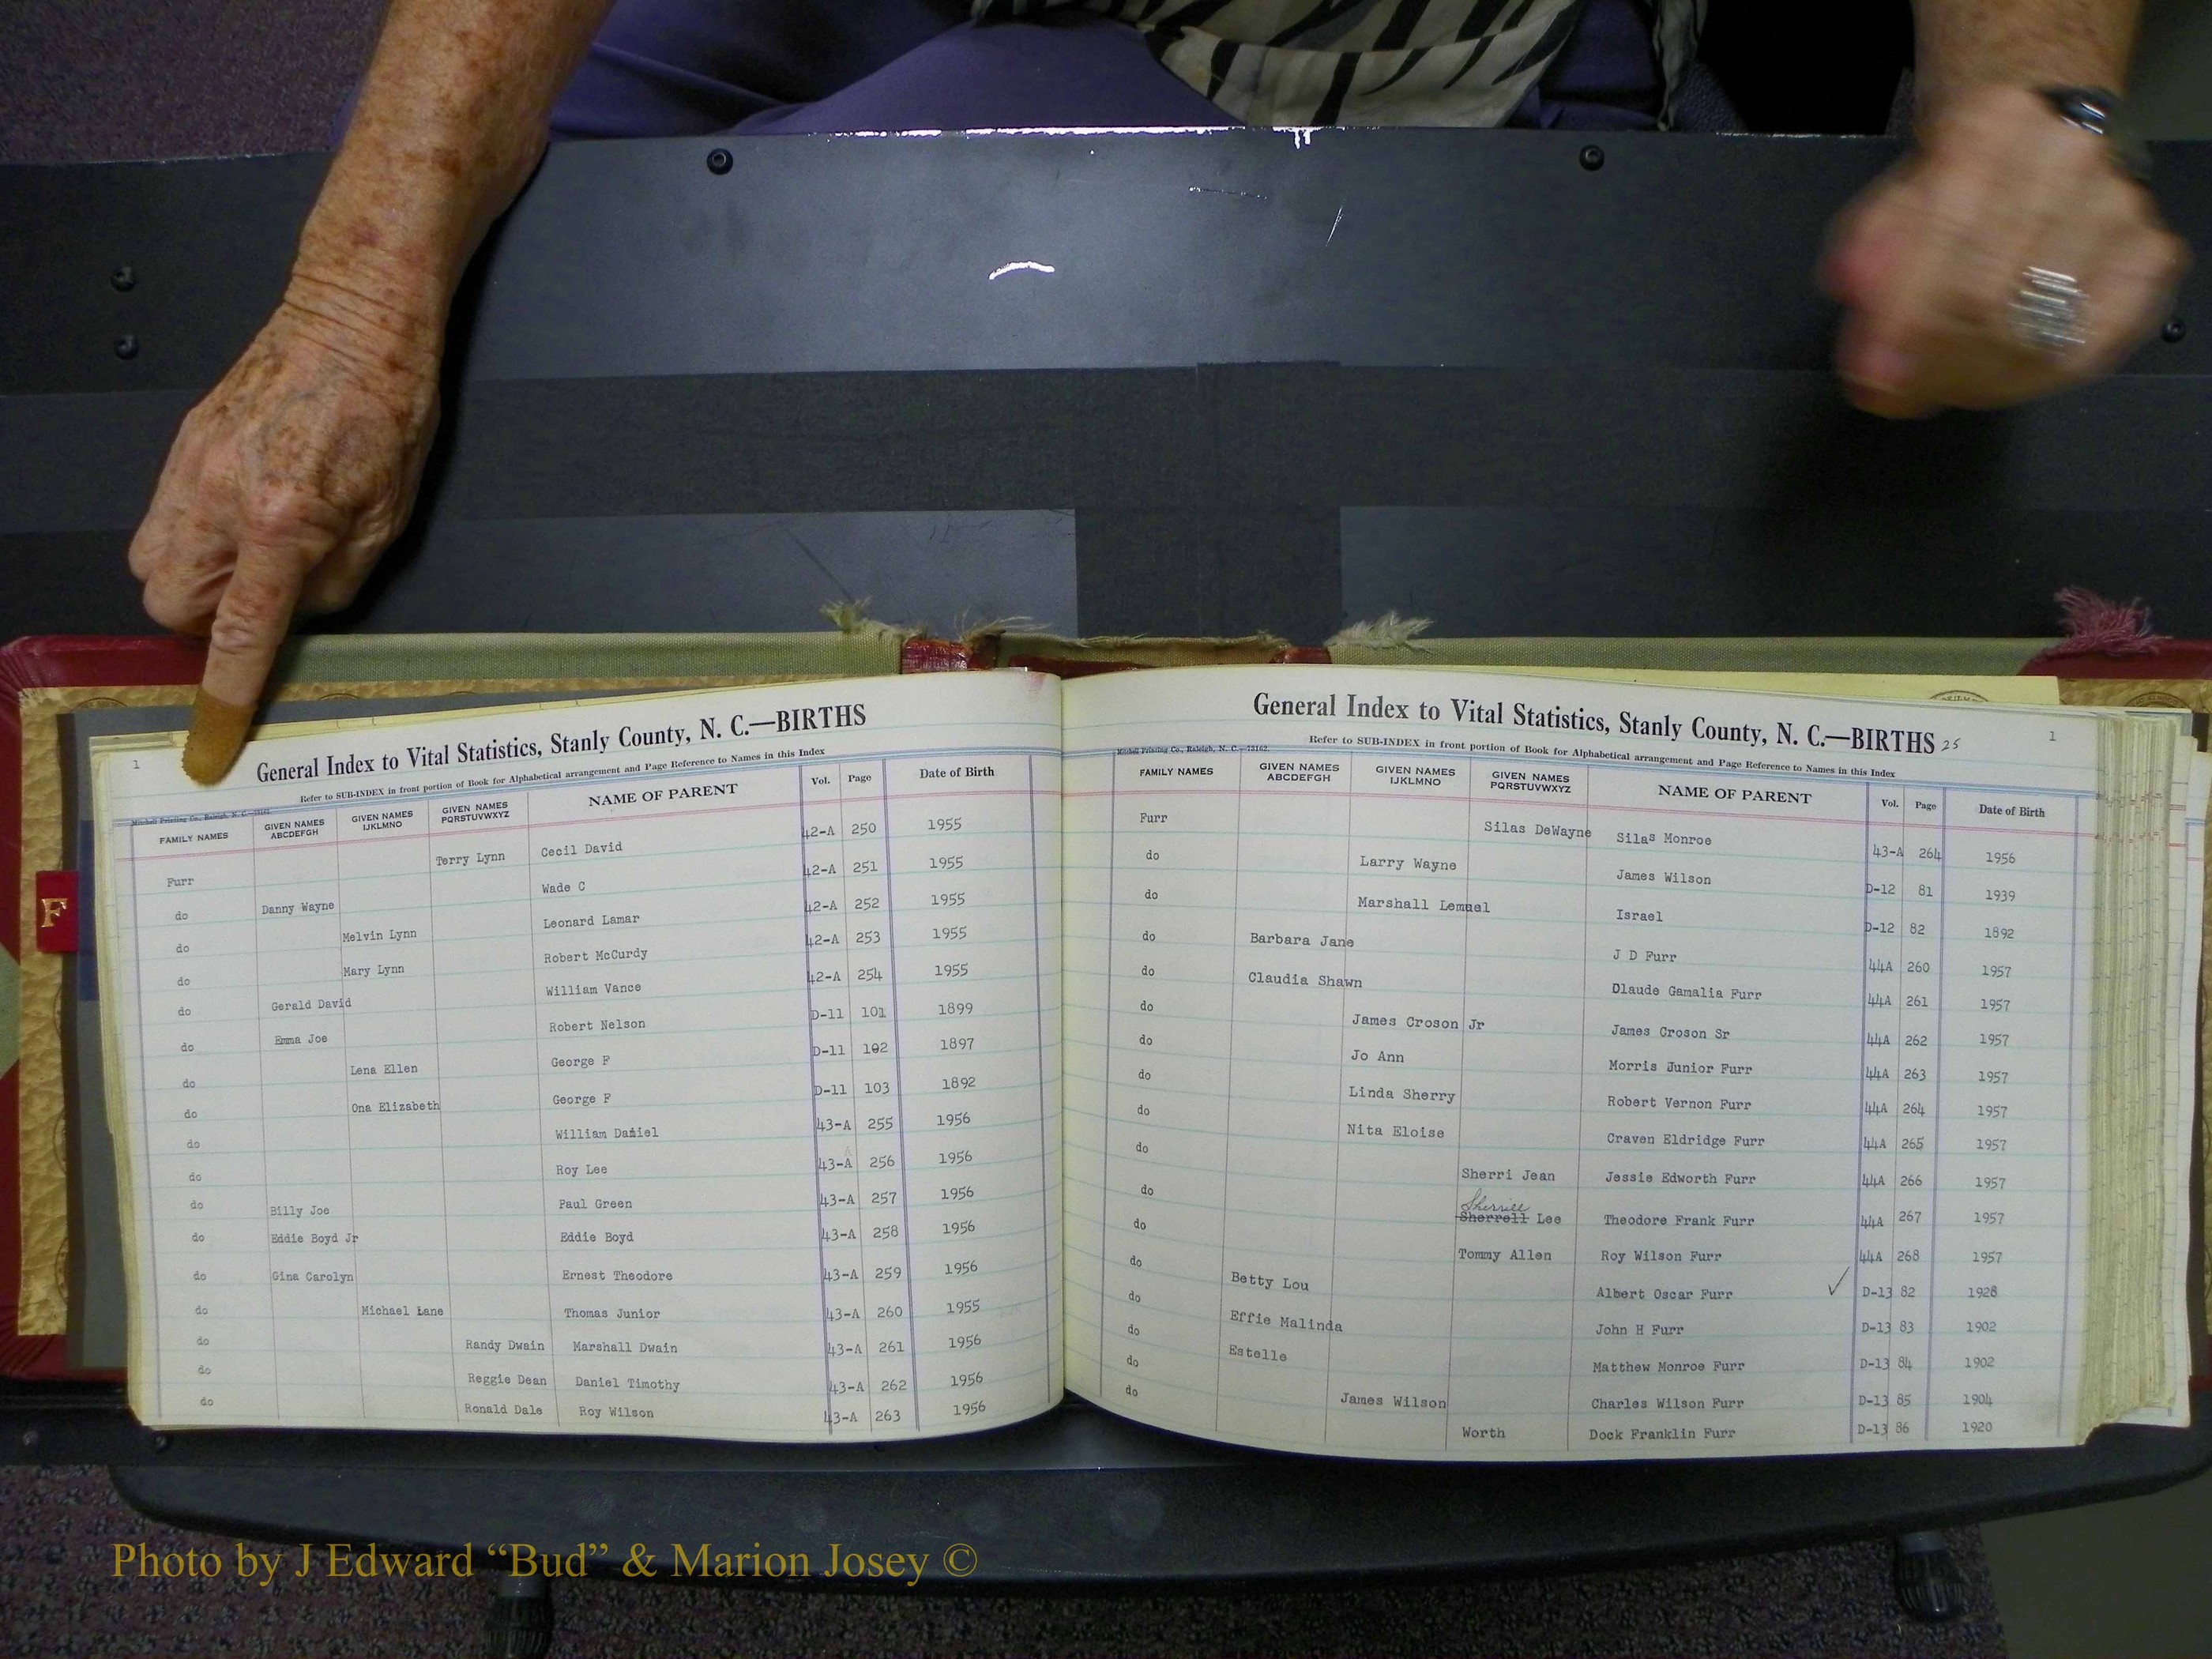 1
General Index to Vital Statistics, Stanly County, N. C.—BIRTHS
Refer to SUB-INDEX in front portion of Book for Alphabetical arrangement and Page Reference to Names in this Index
Mitchell Printing Co., Raleigh, N. C.—73162
FAMILY NAMES GIVEN NAMES ABCDEFGH GIVEN NAMES IJKLMNO GIVEN NAMES PQRSTUVWXYZ NAME OF PARENT Vol. Page Date of Birth
Furr Terry Lynn Cecil David 42-A 250 1955
do Danny Wayne Wade C 42-A 251 1955
do Melvin Lynn Leonard Lamar 42-A 252 1955
do Mary Lynn Robert McCurdy 42-A 253 1955
do Gerald David William Vance 42-A 254 1955
do Emma Joe Robert Nelson D-11 101 1899
do Lena Ellen George F D-11 102 1897
do Ona Elizabeth George F D-11 103 1892
do William Daniel 43-A 255 1956
do Roy Lee 43-A 256 1956
do Billy Joe Paul Green 43-A 257 1956
do Eddie Boyd Jr Eddie Boyd 43-A 258 1956
do Gina Carolyn Ernest Theodore 43-A 259 1956
do Michael Lane Thomas Junior 43-A 260 1955
do Randy Dwain Marshall Dwain 43-A 261 1956
do Reggie Dean Daniel Timothy 43-A 262 1956
do Ronald Dale Roy Wilson 43-A 263 1956
F
General Index to Vital Statistics, Stanly County, N. C.—BIRTHS 25
1
Refer to SUB-INDEX in front portion of Book for Alphabetical arrangement and Page Reference to Names in this Index
Mitchell Printing Co., Raleigh, N. C.—73162
FAMILY NAMES GIVEN NAMES ABCDEFGH GIVEN NAMES IJKLMNO GIVEN NAMES PQRSTUVWXYZ NAME OF PARENT Vol. Page Date of Birth
Furr Silas DeWayne Silas Monroe 43-A 264 1956
do Larry Wayne James Wilson D-12 81 1939
do Marshall Lemuel Israel D-12 82 1892
do Barbara Jane J D Furr 44A 260 1957
do Claudia Shawn Dlaude Gamalia Furr 44A 261 1957
do James Croson Jr James Croson Sr 44A 262 1957
do Jo Ann Morris Junior Furr 44A 263 1957
do Linda Sherry Robert Vernon Furr 44A 264 1957
do Nita Eloise Craven Eldridge Furr 44A 265 1957
do Sherri Jean Jessie Edworth Furr 44A 266 1957
Sherrill
do Sherrell Lee Theodore Frank Furr 44A 267 1957
do Tommy Allen Roy Wilson Furr 44A 268 1957
do Betty Lou Albert Oscar Furr ✓ D-13 82 1928
do Effie Malinda John H Furr D-13 83 1902
do Estelle Matthew Monroe Furr D-13 84 1902
do James Wilson Charles Wilson Furr D-13 85 1904
do Worth Dock Franklin Furr D-13 86 1920
Photo by J Edward “Bud” & Marion Josey ©